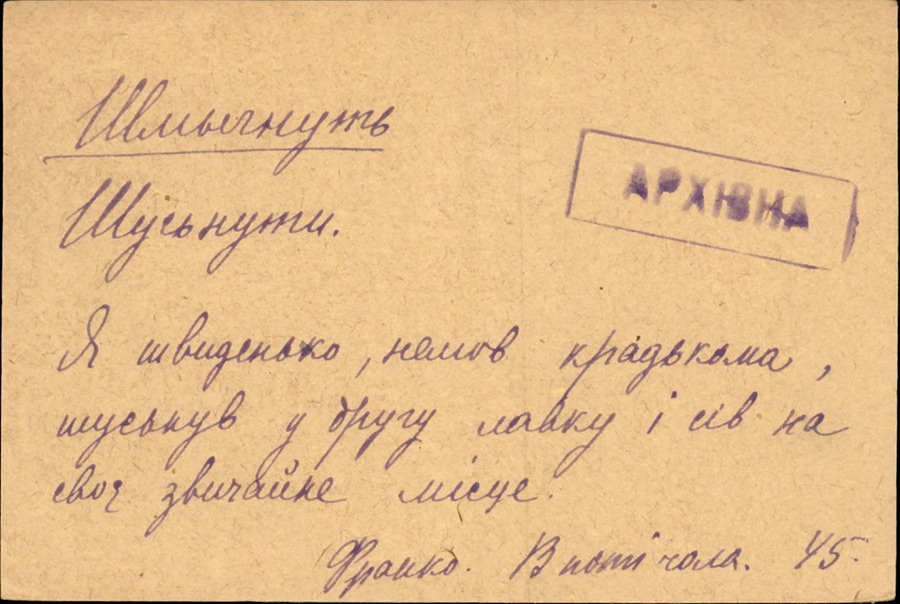 Шмыгнуть
АРХІВНА
Шуснути.
Я швиденько, немов крадькома,
шуснув у другу лавку і сів на
своє звичайне місце.
Франко. В поті чола. 45.